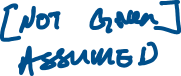 [NOT GIVEN]
ASSUMED